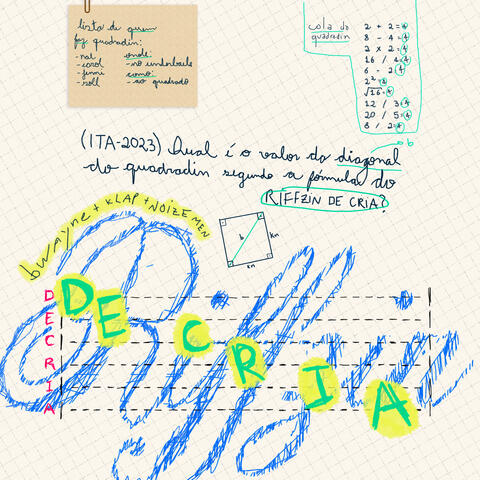 lista de quem
faz quadradin:
onde:
-nal
-no underbeile
-carol
como:
-fenni
-ao quadrado
-roll
cola do
quadradin
2 + 2 = 4
8 - 4 = 4
2 x 2 = 4
16 / 4 = 4
6 - 2 4
2² = 4
√16 = 4
12 / 3 4
20 / 5 = 4
8 / 2 = 4
b
(ITA-2023) Qual é o valor da diagonal
do quadradin segundo a fórmula do
RIFFZIN DE CRIA?
b wayne + KLAP + NOIZE MEN
b
Kn
kn
Riffzin
DE CRIA
D
E
C
R
I
A